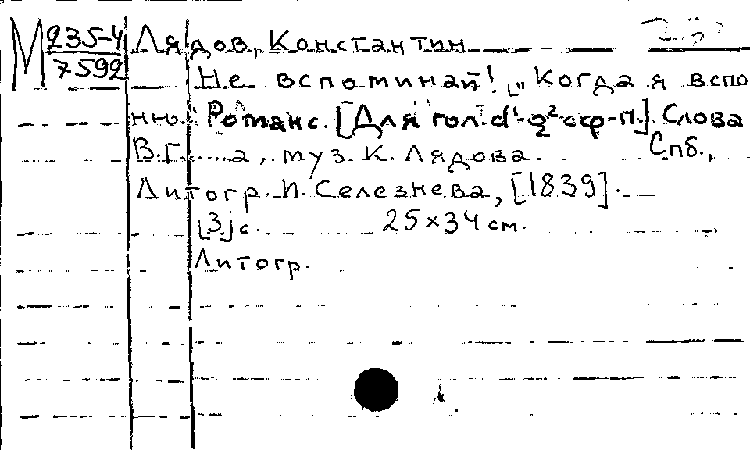 М 235-4
7592
Лядов, Константин
Не вспоминай! „Когда я вспо
ню." Романс. [Для гол. d¹-g² с ф-п.]. Слова
В.Г.....а, муз. К. Лядова. Спб.,
Литогр. П. Селезнева, [1839].
[3] с. 25×34 см.
Литогр.